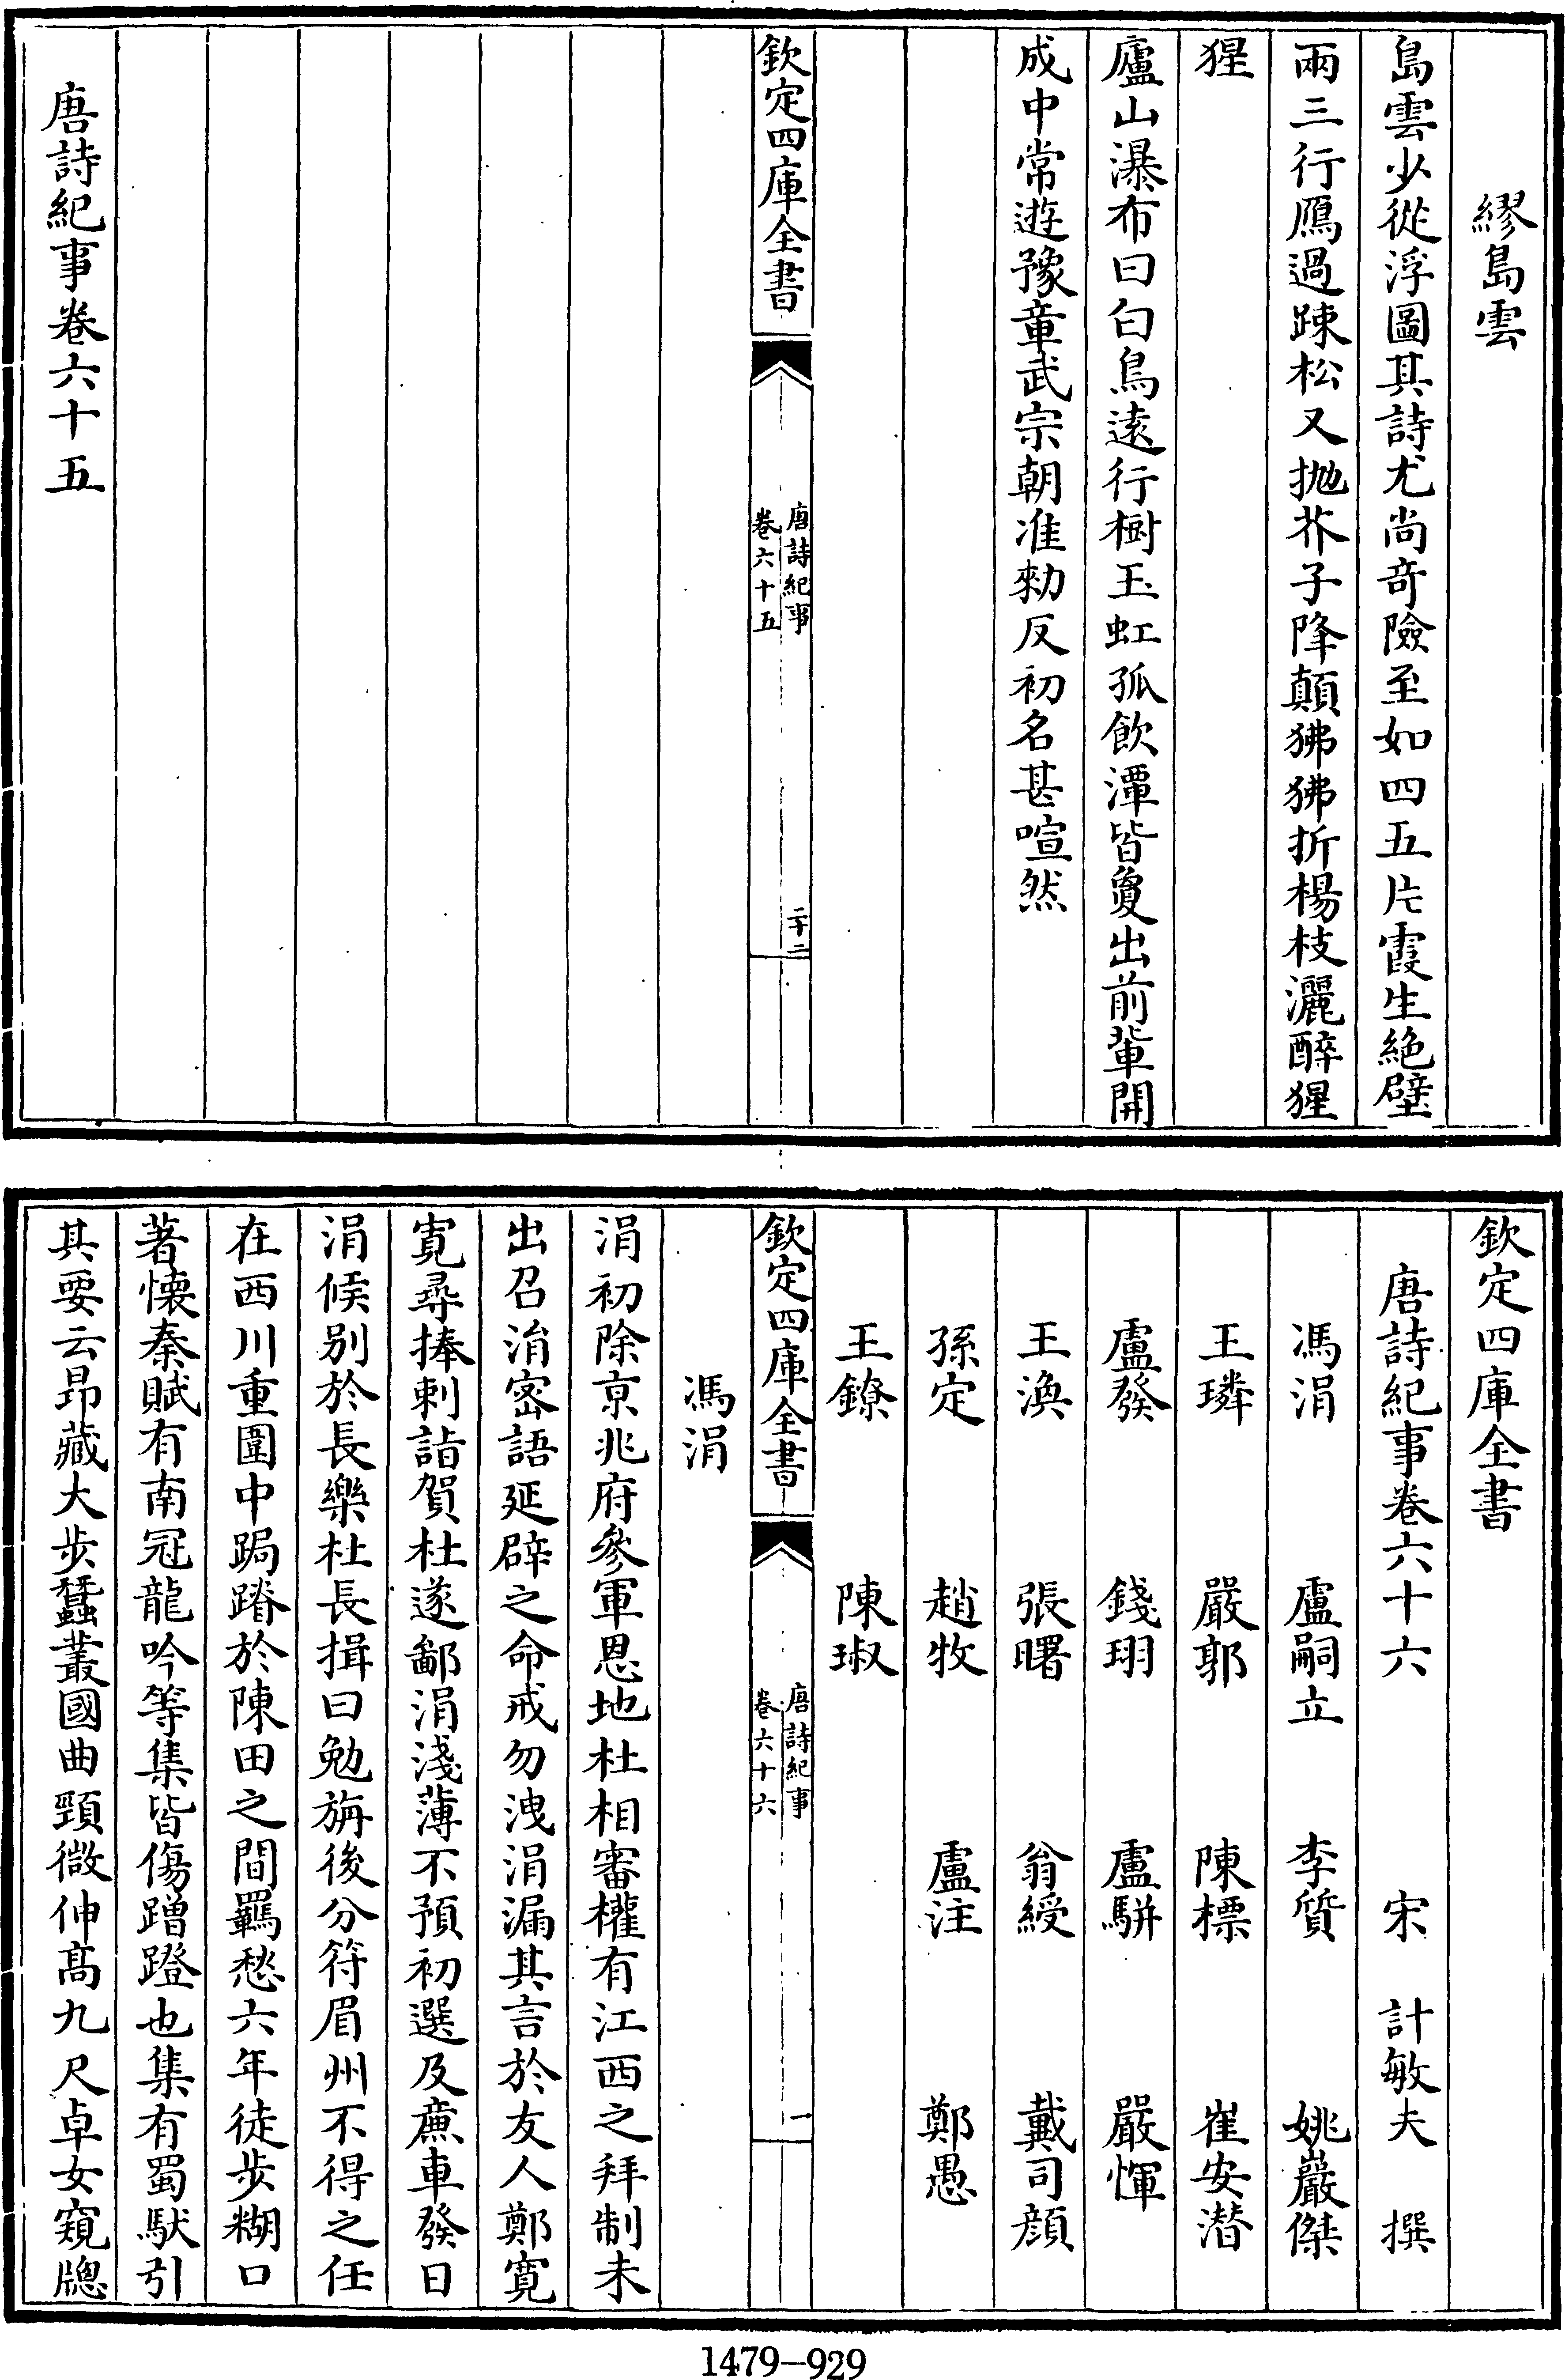 繆島雲
島雲少從浮圖其詩尤尚奇險至如四五片霞生絶壁
兩三行鴈過踈松又抛芥子降顛狒狒折楊枝灑醉猩
猩
廬山瀑布曰白鳥遠行樹玉虹孤飲潭皆敻出前輩開
成中常遊豫章武宗朝准勑反初名甚喧然
欽定四庫全書
唐詩紀事
卷六十五
二十二
唐詩紀事卷六十五
欽定四庫全書
唐詩紀事卷六十六 宋 計敏夫 撰
馮涓 盧嗣立 李質 姚巖傑
王璘 嚴郭 陳標 崔安潜
盧發 錢珝 盧駢 嚴惲
王渙 張曙 翁綬 戴司顔
孫定 趙牧 盧注 鄭愚
王鐐 陳琡
欽定四庫全書
唐詩紀事
卷六十六
一
馮涓
涓初除京兆府參軍恩地杜相審權有江西之拜制未
出召涓密語延辟之命戒勿洩涓漏其言於友人鄭寛
寛尋捧刺詣賀杜遂鄙涓淺薄不預初選及廉車發日
涓候别於長樂杜長揖曰勉旃後分符眉州不得之任
在西川重圍中跼蹐於陳田之間羈愁六年徒步糊口
著懐秦賦有南冠龍吟等集皆傷蹭蹬也集有蜀馱引
其要云昂藏大步蠶叢國曲頸微伸髙九尺卓女窺牕
1479-929